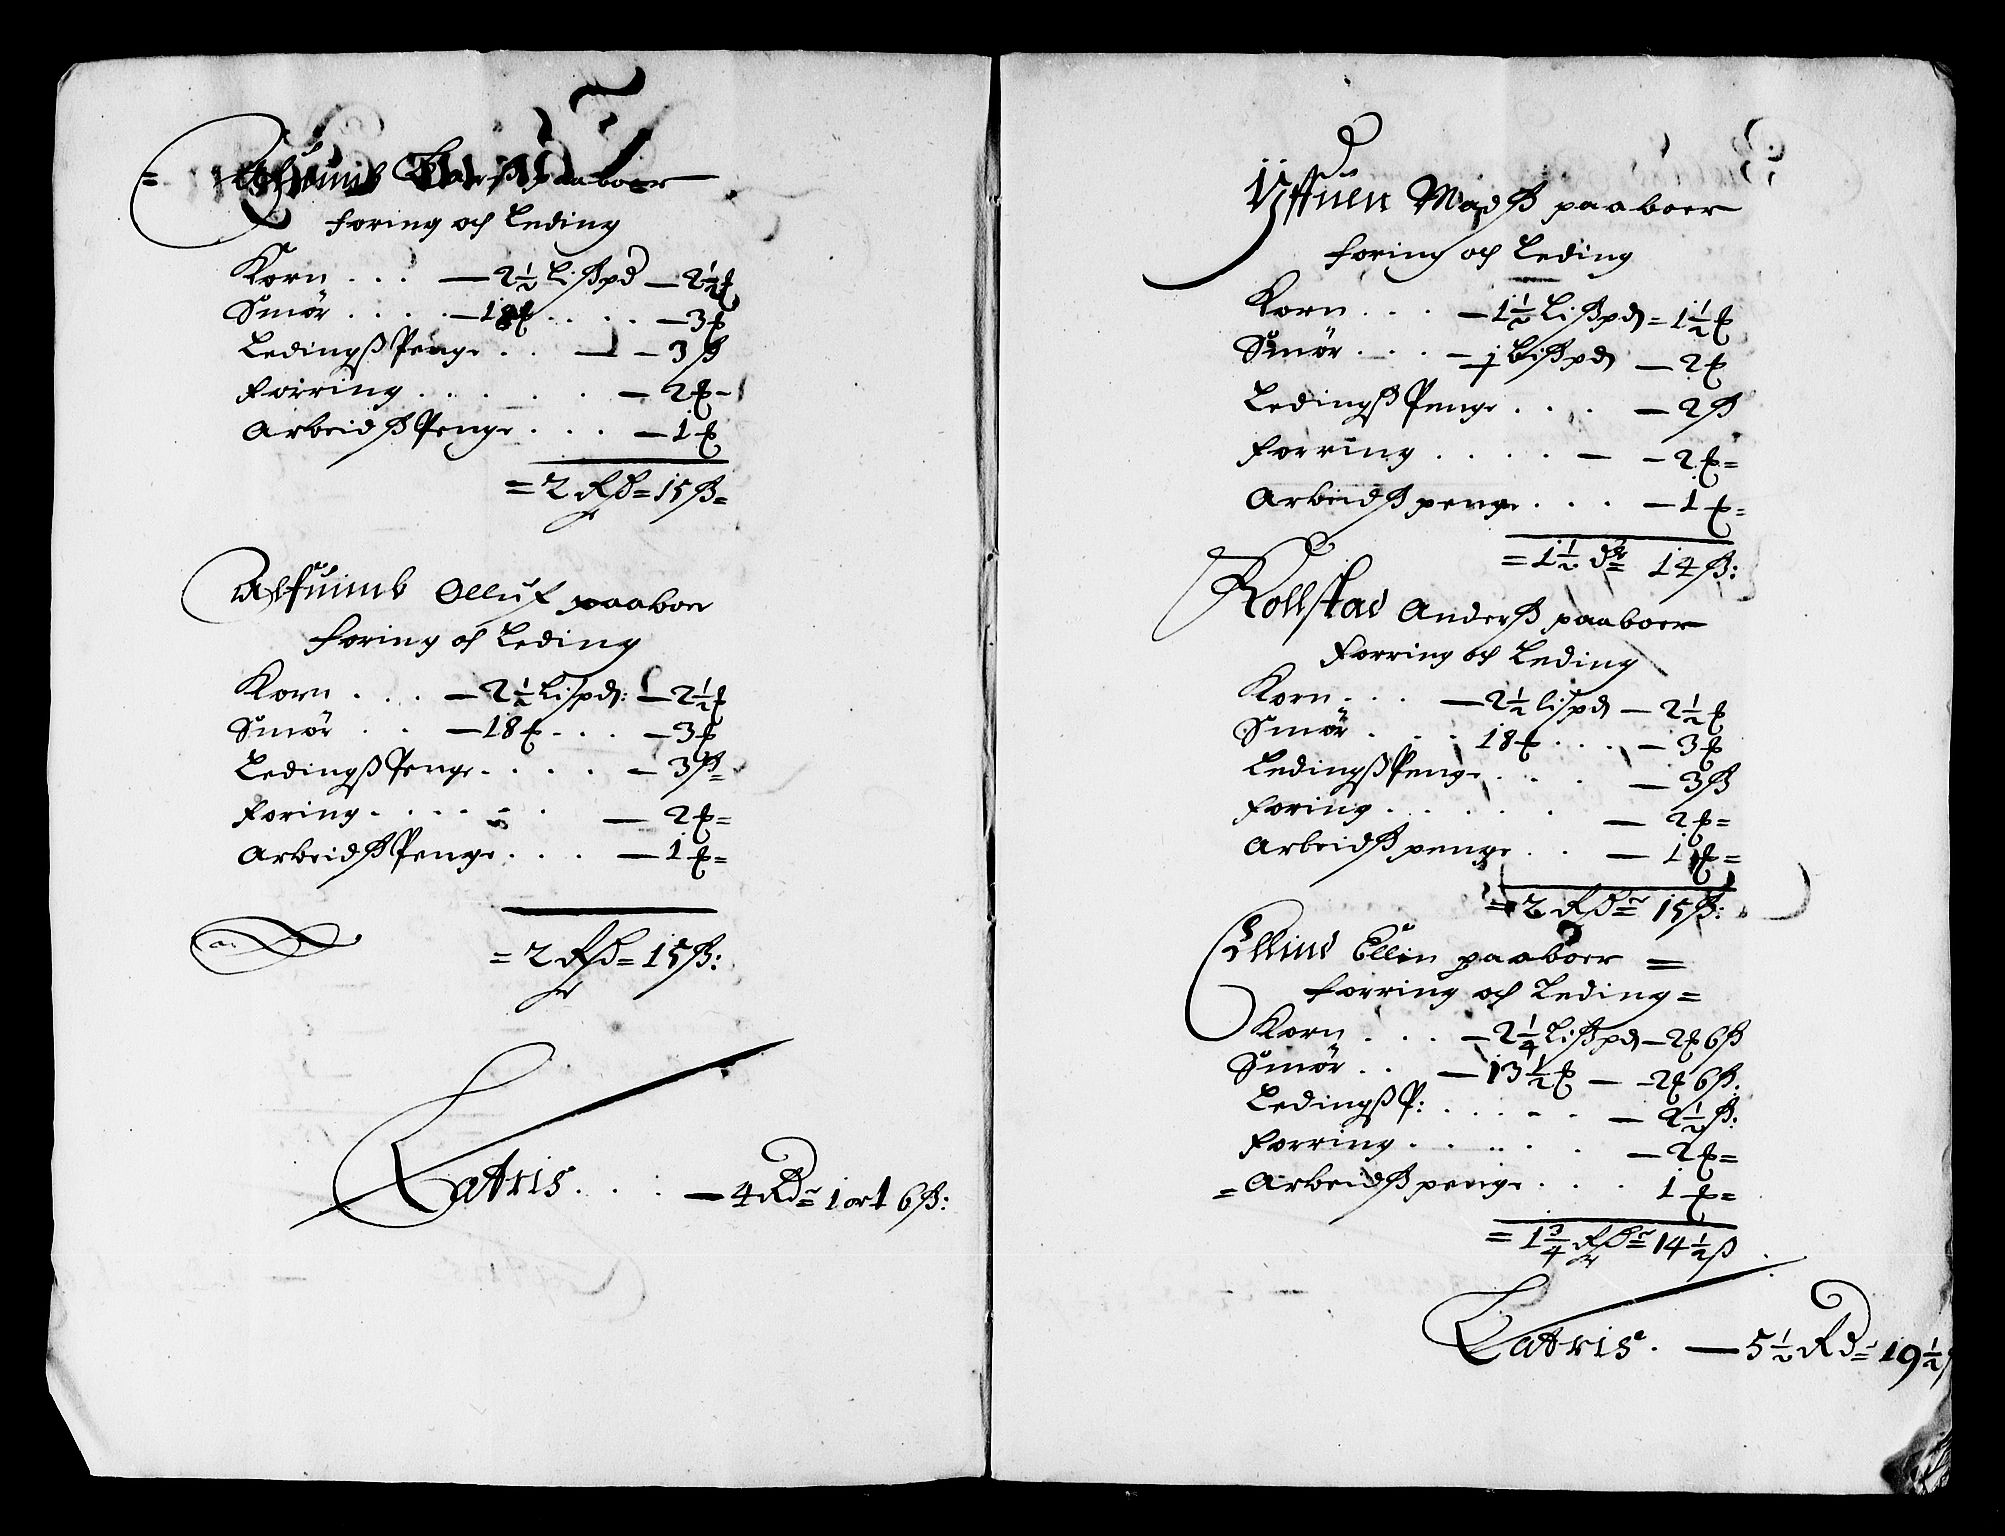 Alsuimb Larß paaboer
foring och Leding
Korn . . . — 2½ Lißpd — 2½ ℔
Smör . . . . — 18 ℔ . . . . — 3 ℔
Ledingß Penge . . — — 3 ß
Foiring . . . . . . — 2 ℔ —
Arbeidß Penge . . . — 1 ℔
= 2 Rd = 15 ß =
Alsuimb Olluf paaboer
foring och Leding
Korn . . . — 2½ Lispd: — 2½ ℔
Smör . . — 18 ℔ . . . — 3 ℔
Ledingß Penge . . . . — 3 ß =
Foring . . . . . . — 2 ℔ =
Arbeidß Penge . . . — 1 ℔ =
= 2 Rd = 15 ß:
Latris . . . — 4 Rdr = 1 ort 6 ß:
Madß paaboer
foring och Leding
Korn . . . — 1½ Lißpd = 1½ ℔
Smör . . . — 1 Lißpd — 2 ℔
Ledingß Penge . . . — 2 ß
Forring . . . . — — 2 ℔ =
Arbeidß penge . . . — 1 ℔ =
= 1½ dr = 14 ß:
Rollstad Anderß paaboer
Forring och Leding
Korn . . . — 2½ lispd — 2½ ℔
Smör . . . 18 ℔ . . . — 3 ℔
Ledingß Penge . . . — 3 ß
Foring . . . . . — 2 ℔ =
Arbeidß penge . . — 1 ℔ =
= 2 Rdr = 15 ß:
Ellind Ellin paaboer =
forring och Leding =
Korn . . . — 2¼ Lißpd — 2 ℔ 6 ß
Smör . . — 13½ ℔ — — 2 ℔ 6 ß:
Ledingß P: . . . . . — 2½ ß:
Forring . . . . . — 2 ℔ =
= Arbeidß penge . . . 1 ℔ =
= 1¾ Rdr = 14½ ß
Latris . — 5½ Rdr = 19½ ß